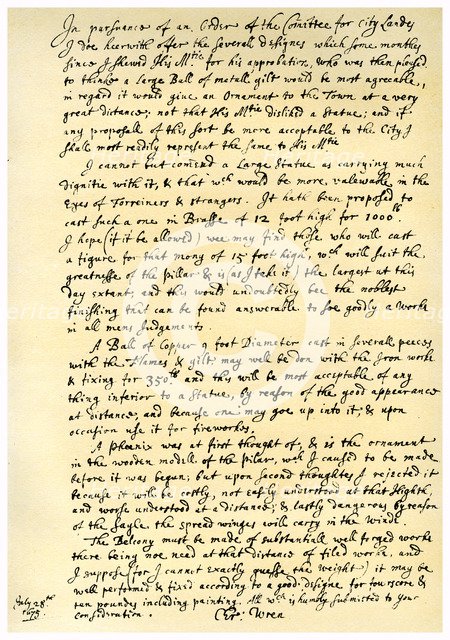 In pursuance of an Order of the Comittee for City Landes
I doe heerwith offer the severall designes which some monthes
since I shewed His Mtie for his approbation, who was then pleased
to thinke a large Ball of metall gilt would be most agreeable,
in regard it would give an Ornament to the Town at a very
great distance; not that His Mtie disliked a Statue; and if
any proposall of this sort be more acceptable to the City I
shall most readily represent the same to His Mtie
I cannot but comend a Large Statue as carrying much
dignitie with it, & that wch would be more valewable in the
Eyes of Forreiners & strangers. It hath been proposed to
cast such a one in Brasse of 12 foot high for 1000lb
I hope (if it be allowed) wee may find those who will cast
a figure for that mony of 15 foot high, wch will suit the
greatnesse of the pillar & is (as I take it) the largest at this
day extant; and this would undoubtedly bee the noblest
finishing that can be found answerable to soe goodly a worke
in all mens Judgements.
A Ball of Copper 9 foot Diameter cast in severall peeces
with the Flames & gilt, may well be don with the Iron worke
& fixing for 350lb and this will be most acceptable of any
thing inferior to a Statue, by reason of the good appearance
at distance, and because one may goe up into it; & upon
occasion use it for fireworkes.
A Phoenix was at first thought of, & is the ornament
in the wooden modell of the pilar, wch I caused to be made
before it was begun; but upon second thoughtes I rejected it
because it will be costly, not easly understood at that Highth,
and worse understood at a distance; & lastly dangerous by reason
of the sayle, the spread winges will carry in the winde.
The Belcony must be made of substantiall well forged worke
there being noe need at that distance of filed worke, and
I suppose (for I cannot exactly guesse the weight) it may be
well performed & fixed according to a good designe for fourscore &
ten poundes including painting. All wch is humbly submitted to your
consideration.
July 28th
1675
Chr: Wren